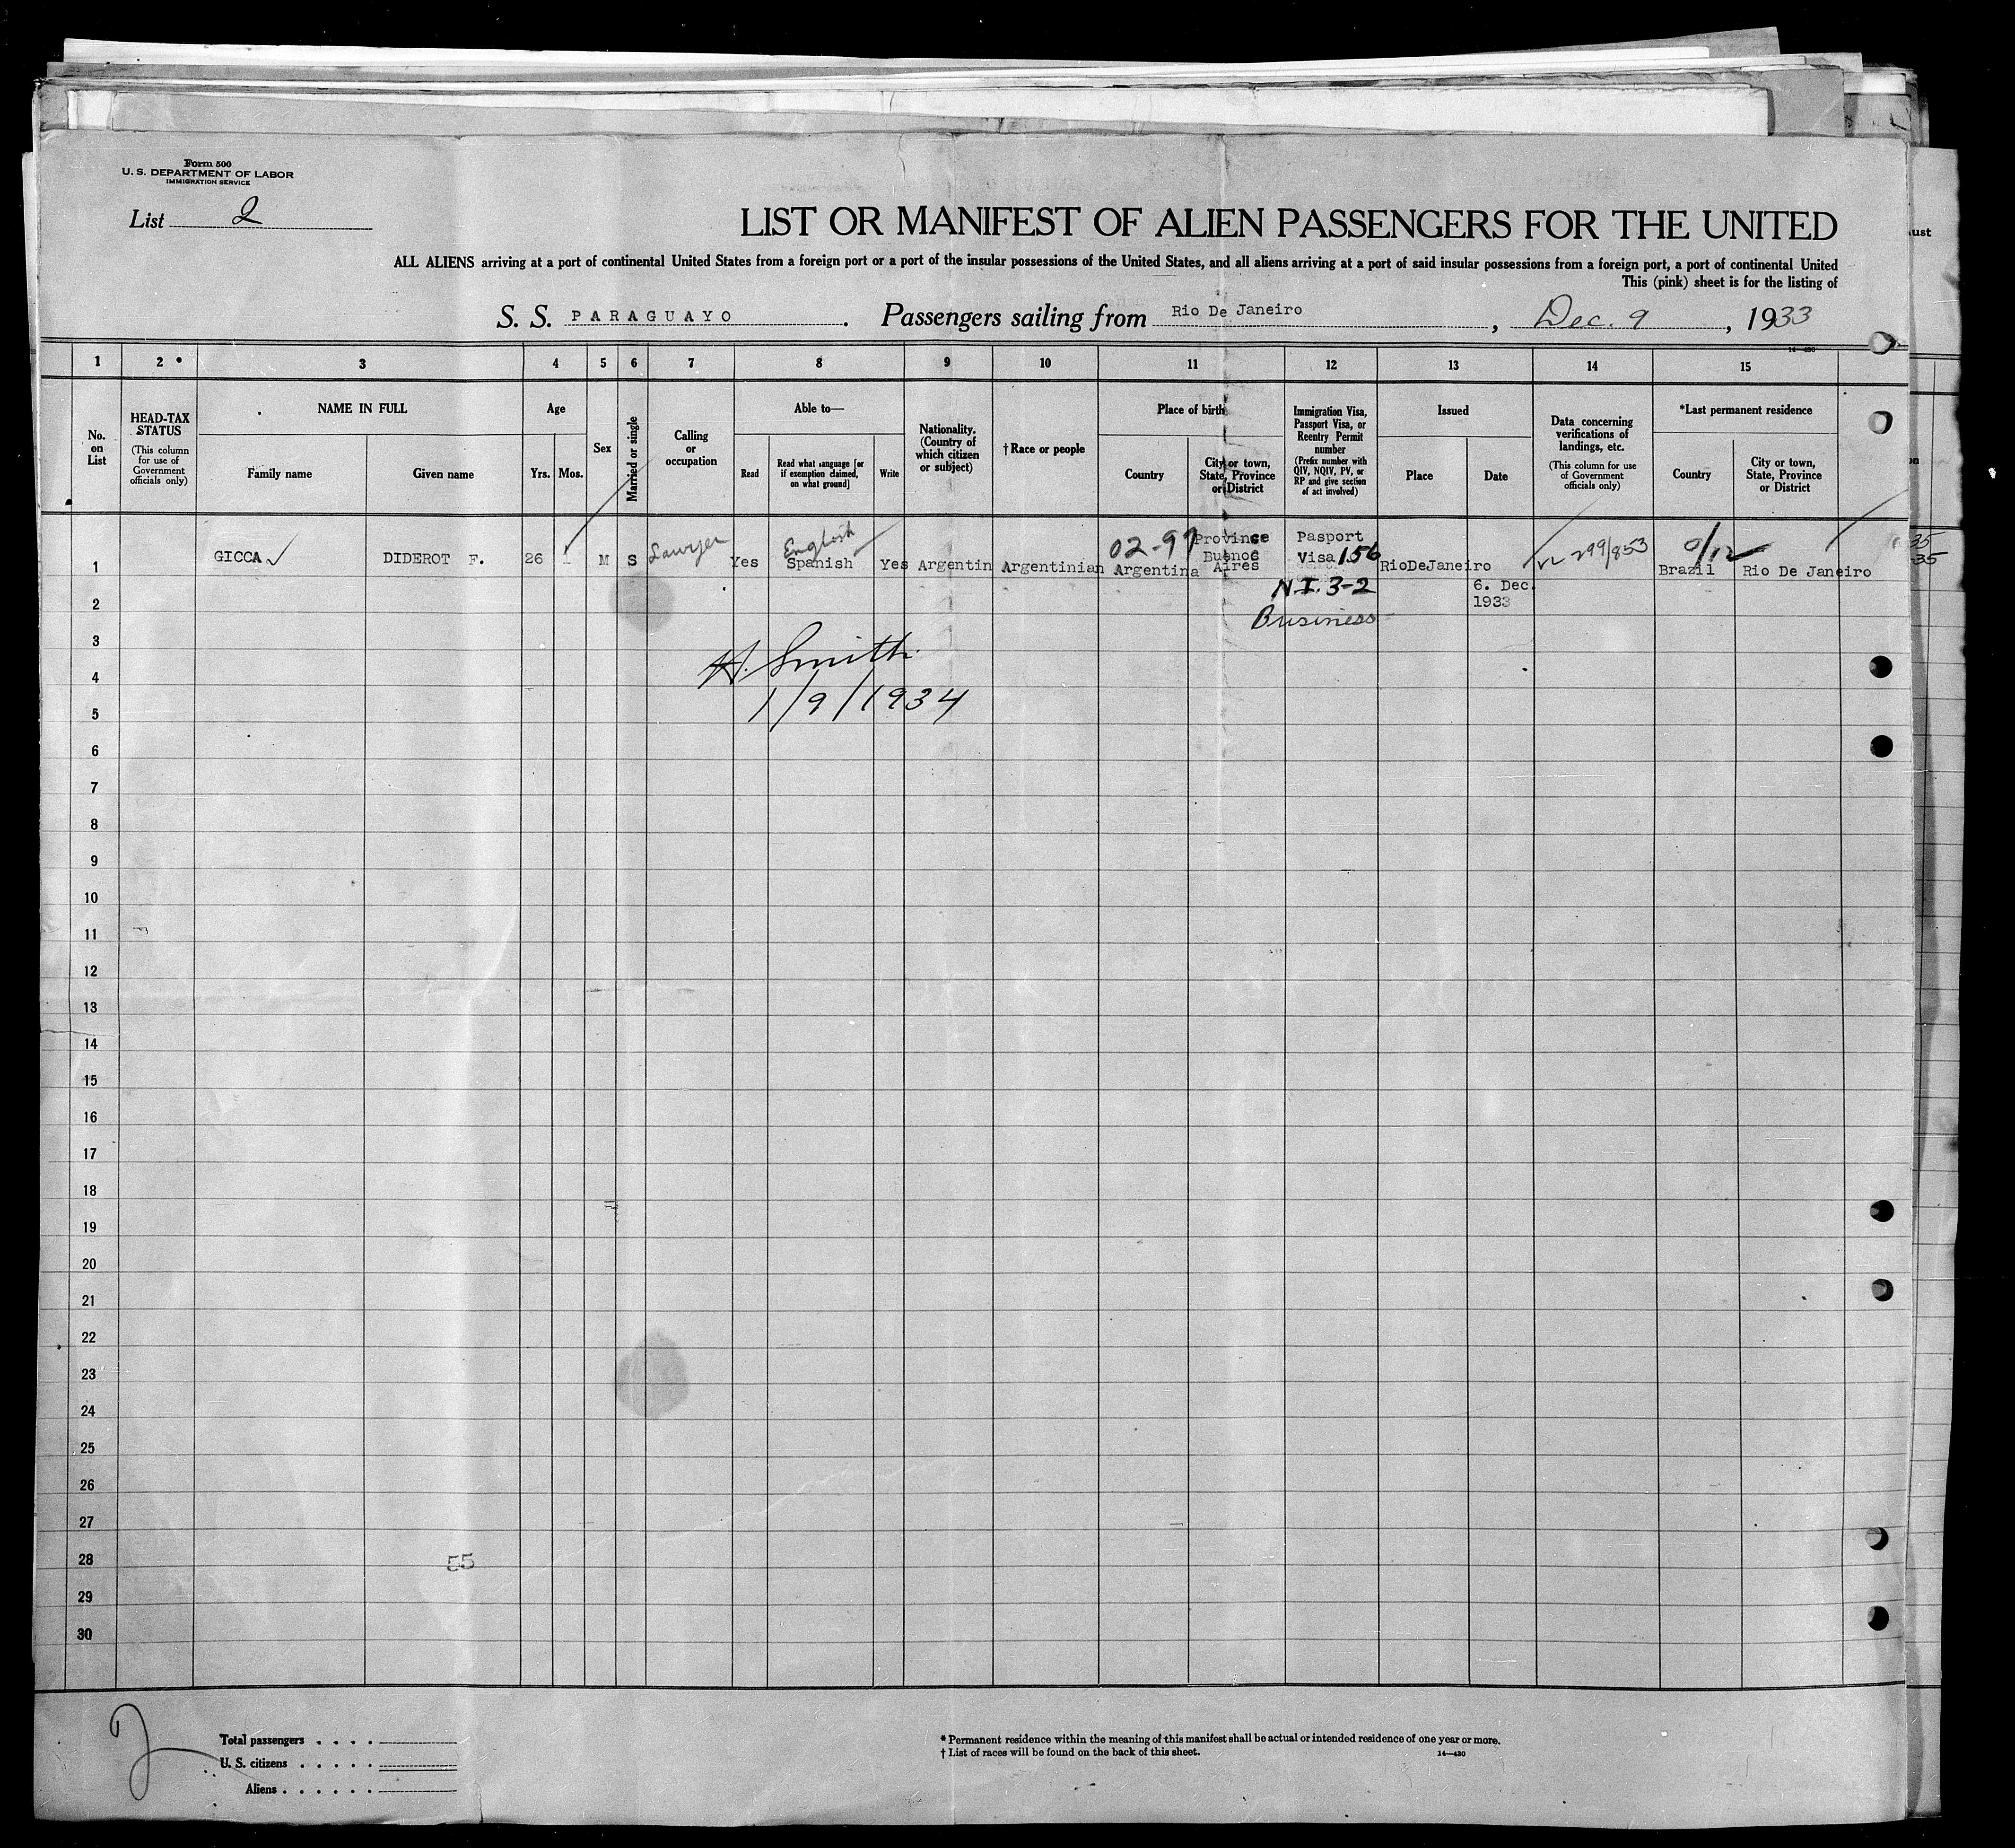 Form 500
U. S. DEPARTMENT OF LABOR
IMMIGRATION SERVICE
List 2
LIST OR MANIFEST OF ALIEN PASSENGERS FOR THE UNITED
ALL ALIENS arriving at a port of continental United States from a foreign port or a port of the insular possessions of the United States, and all aliens arriving at a port of said insular possessions from a foreign port, a port of continental United
This (pink) sheet is for the listing of
S. S. PARAGUAYO. Passengers sailing from Rio De Janeiro, Dec. 9, 1933
14—430
1 2 3 4 5 6 7 8 9 10 11 12 13 14 15
No. on List
HEAD-TAX STATUS
(This column for use of Government officials only)
NAME IN FULL
Family name
Given name
Age
Yrs.
Mos.
Sex
Married or single
Calling or occupation
Able to—
Read
Read what language [or if exemption claimed, on what ground]
Write
Nationality. (Country of which citizen or subject)
†Race or people
Place of birth
Country
City or town, State, Province or District
Immigration Visa, Passport Visa, or Reentry Permit number
(Prefix number with QIV, NQIV, PV, or RP and give section of act involved)
Issued
Place
Date
Data concerning verifications of landings, etc.
(This column for use of Government officials only)
*Last permanent residence
Country
City or town, State, Province or District
1 GICCA DIDEROT F. 26 1 M S Lawyer Yes English Spanish Yes Argentin Argentinian 02-99 Argentina Province Buenos Aires Pasport Visa 156 RioDeJaneiro 6. Dec. 1933 299/853 0/12 Brazil Rio De Janeiro
N.I. 3-2
Business
2
3
H. Smith
4
1/9/1934
5
6
7
8
9
10
11
12
13
14
15
16
17
18
19
20
21
22
23
24
25
26
27
28
55
29
30
Total passengers . . . .
U. S. citizens . . . . .
Aliens . . . . . .
* Permanent residence within the meaning of this manifest shall be actual or intended residence of one year or more.
† List of races will be found on the back of this sheet.
14—430